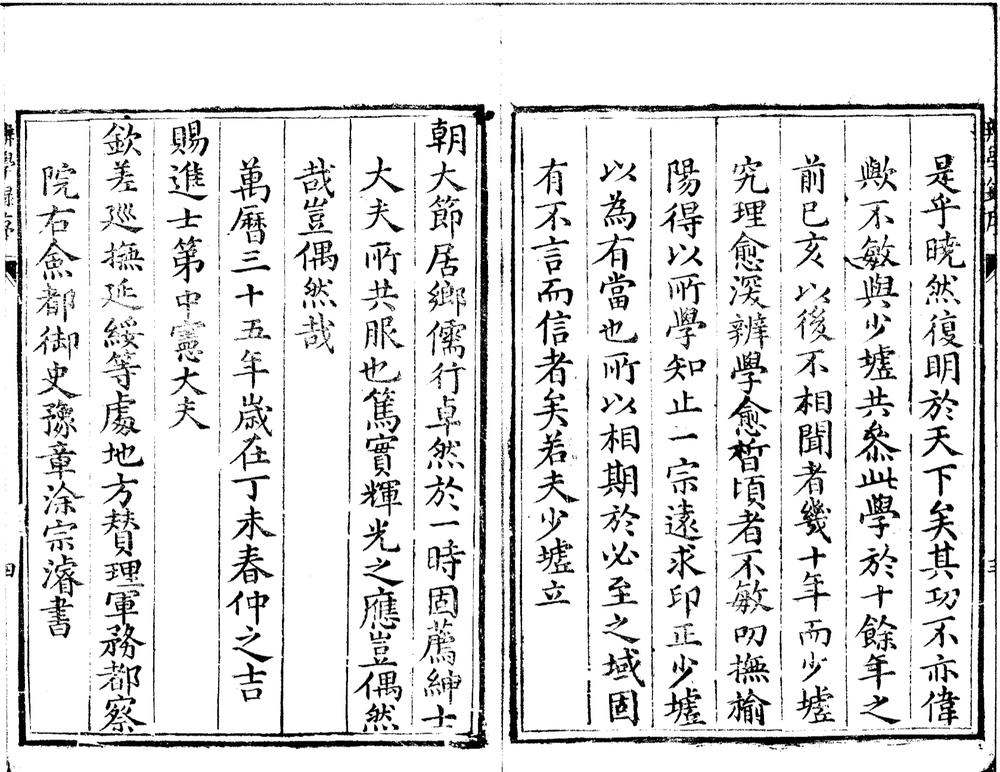 是乎曉然復明於天下矣其功不亦偉
歟不敏與少墟共叅此學於十餘年之
前巳亥以後不相聞者幾十年而少墟
究理愈深辨學愈晳頃者不敏叨撫榆
陽得以所學知止一宗遠求印正少墟
以為有當也所以相期於必至之域固
有不言而信者矣若夫少墟立
朝大節居鄉儒行卓然於一時固薦紳士
大夫所共服也篤實輝光之應豈偶然
哉豈偶然哉
萬曆三十五年歲在丁未春仲之吉
賜進士第中憲大夫
欽差廵撫延綏等處地方贊理軍務都察
院右僉都御史豫章涂宗濬書
辨學錄序
四